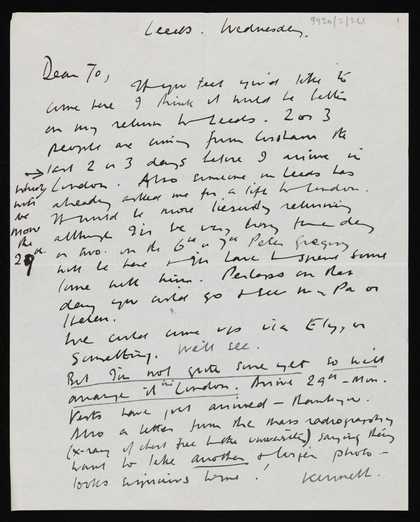 Leeds. Wednesday.
Dear To,
If you feel you'd like to
come here I think it would be better
on my return to Leeds. 2 or 3
people are coming from Corsham the
→ last 2 or 3 days before I arrive in
London. Also someone in Leeds has
already asked me for a lift to London.
It would be more leisurely returning
although I'll be very busy some day
or two. on the 6th or 7th Peter Gregory
will be here & I'll have to spend some
time with him. Perhaps on that
day you could go & see my Pa or
Helen.
We could come up via Ely, or
something. We'll see.
But I'm not quite sure yet so will
arrange it in London. Arrive 29th – Mon.
Vests have just arrived – Thankyou.
Also a letter from the mass radiography
(x-ray of chest free to the university) saying they
want to take another & larger photo –
looks suspicious to me!
Kenneth.
which
will
be
more
the
29th
9920/2/261